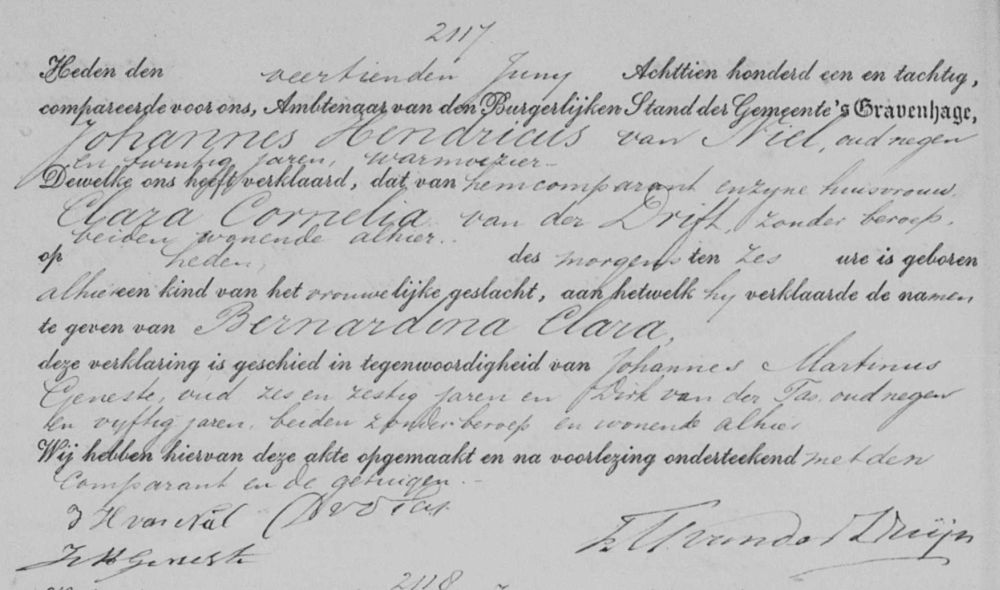 2117
Heden den veertienden Juny Achttien honderd een en tachtig,
compareerde voor ons, Ambtenaar van den Burgerlijken Stand der Gemeente 's Gravenhage,
Johannes Hendricus van Niel, oud negen
en twintig jaren, warmoezier
Dewelke ons heeft verklaard, dat van hem comparant en zyne huisvrouw
Clara Cornelia van der Drift, zonder beroep,
beiden wonende alhier.
op heden, des morgens ten zes ure is geboren
alhier een kind van het vrouwelijke geslacht, aan hetwelk hy verklaarde de namen
te geven van Bernardina Clara,
deze verklaring is geschied in tegenwoordigheid van Johannes Martinus
Geneste, oud zes en zestig jaren en Dirk van der Tas, oud negen
en vyftig jaren, beiden zonder beroep en wonende alhier
Wij hebben hiervan deze akte opgemaakt en na voorlezing onderteekend met den
Comparant en de getuigen.
J H van Niel D v d Tas
J M Geneste
2118